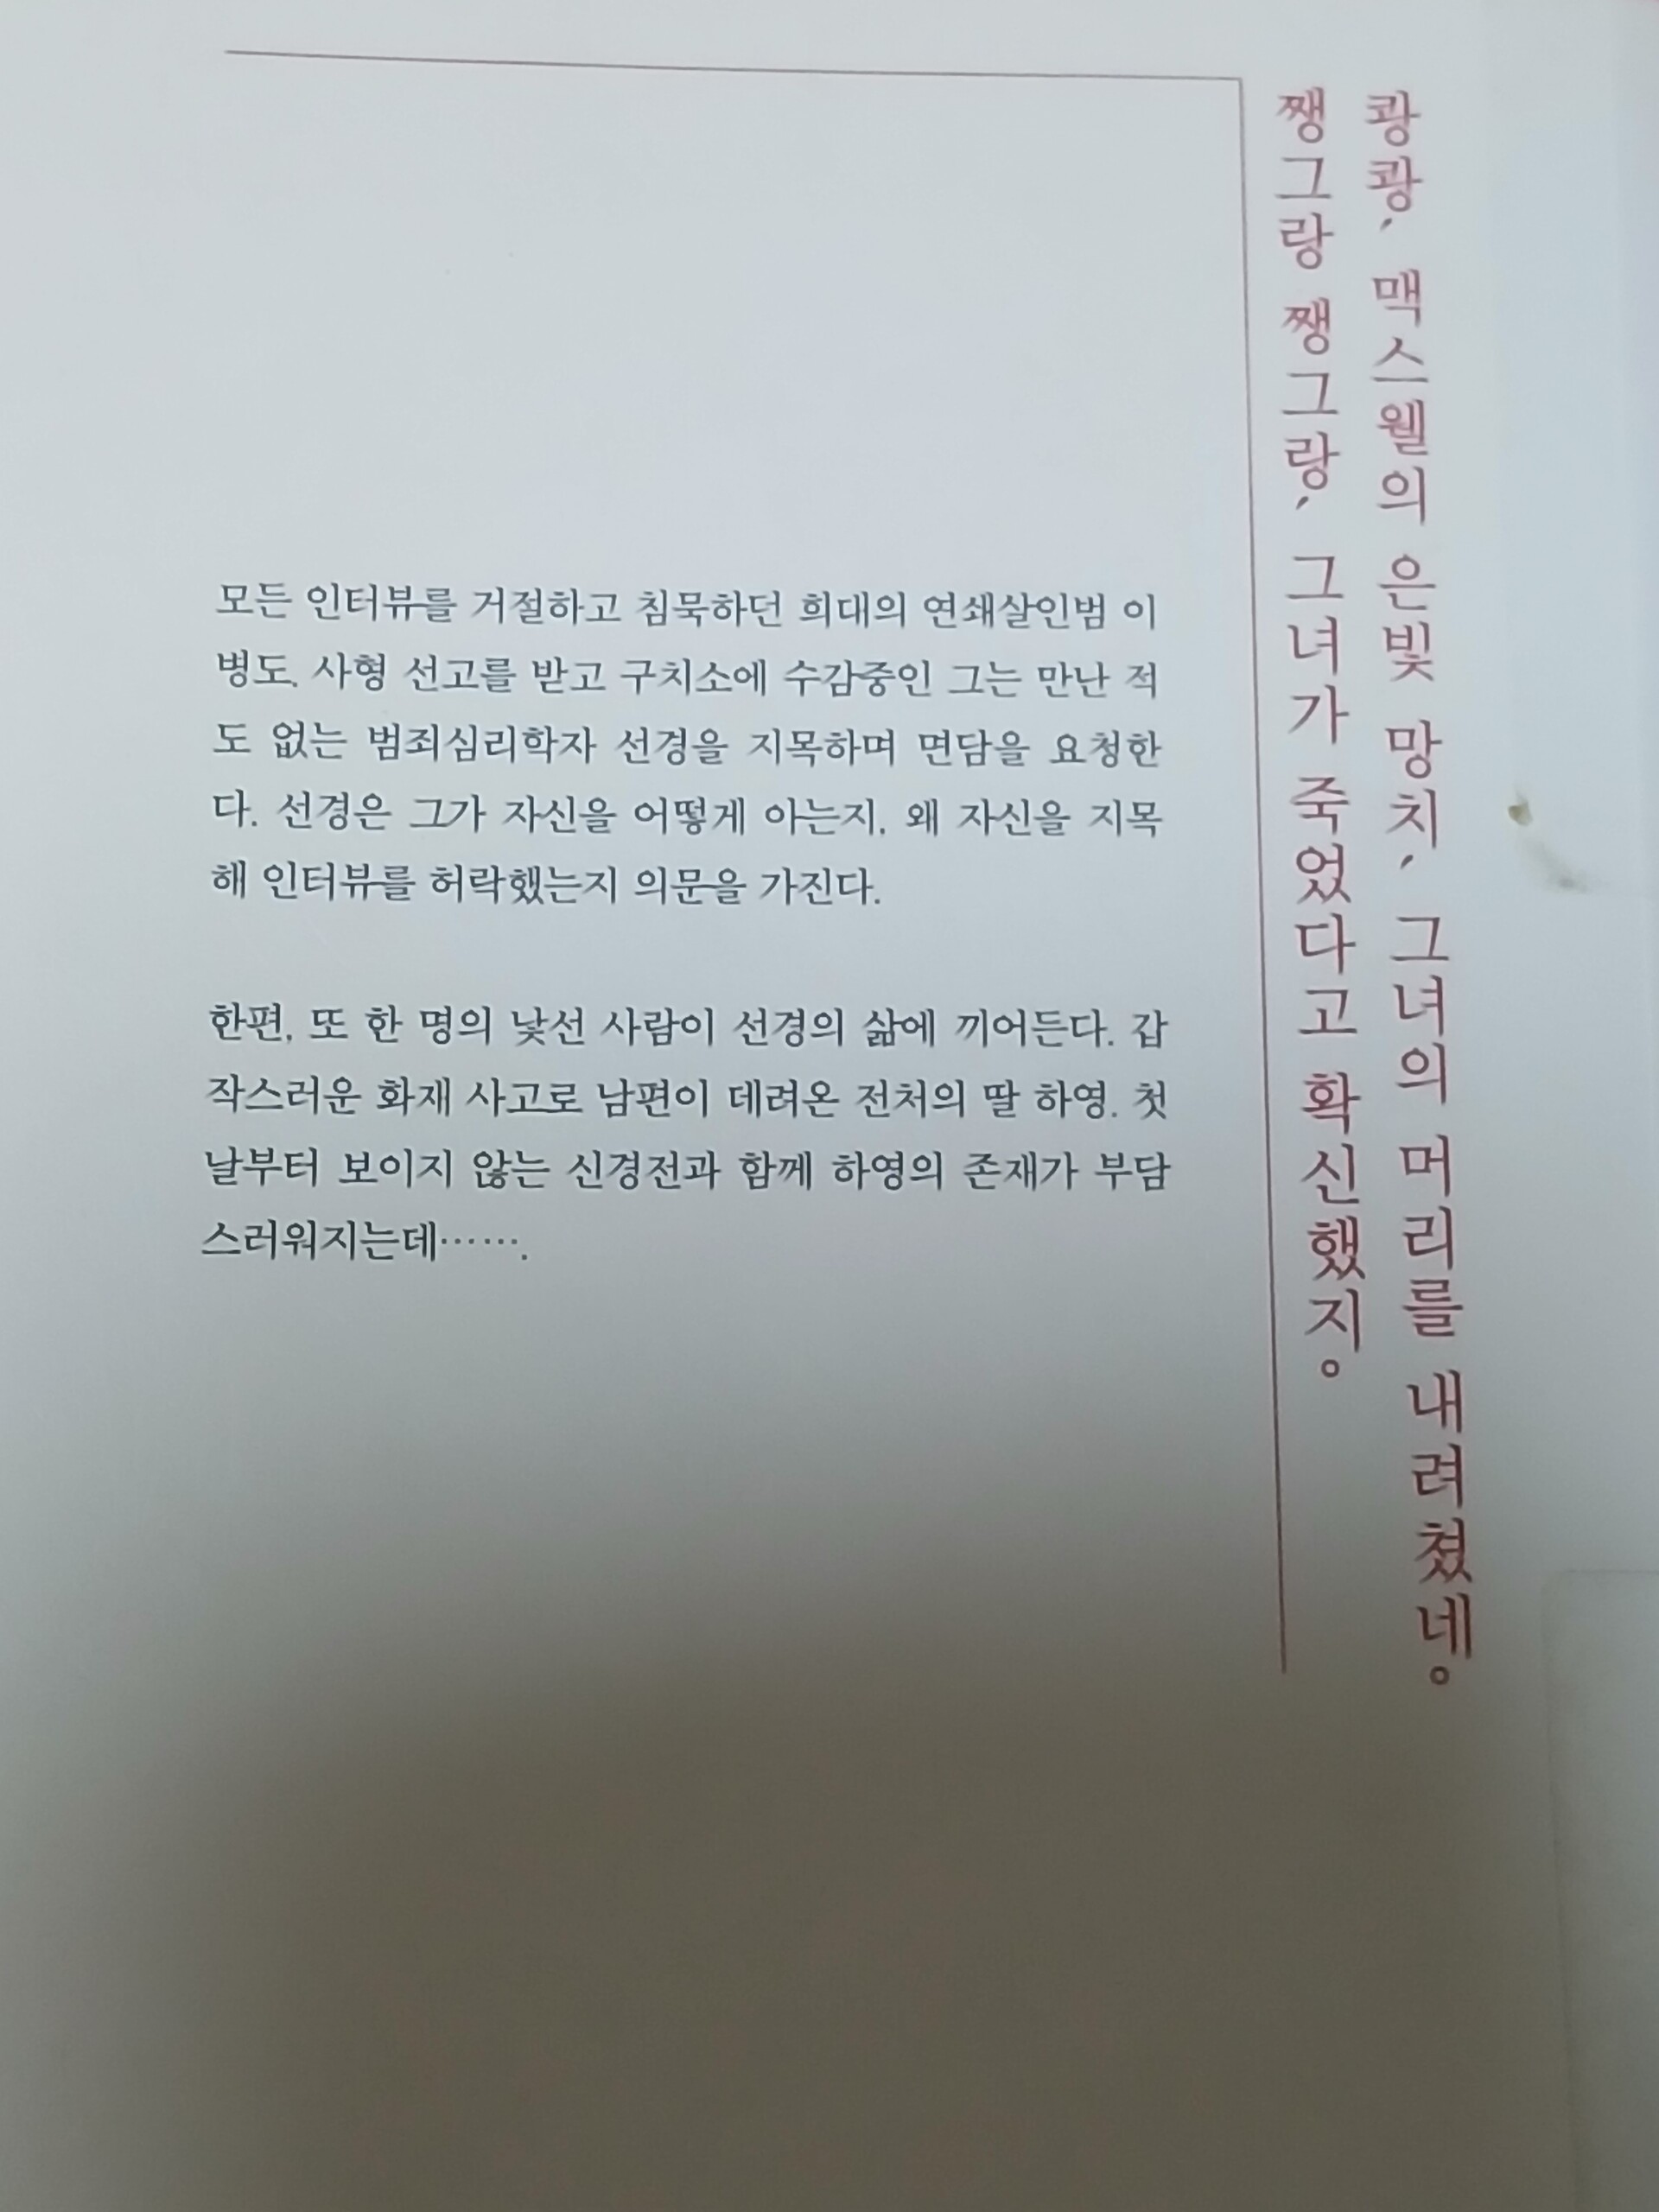 쾅쾅, 맥스웰의 은빛 망치, 그녀의 머리를 내려쳤네。
쨍그랑 쨍그랑, 그녀가 죽었다고 확신했지。
모든 인터뷰를 거절하고 침묵하던 희대의 연쇄살인범 이
병도. 사형 선고를 받고 구치소에 수감중인 그는 만난 적
도 없는 범죄심리학자 선경을 지목하며 면담을 요청한
다. 선경은 그가 자신을 어떻게 아는지, 왜 자신을 지목
해 인터뷰를 허락했는지 의문을 가진다.
한편, 또 한 명의 낯선 사람이 선경의 삶에 끼어든다. 갑
작스러운 화재 사고로 남편이 데려온 전처의 딸 하영. 첫
날부터 보이지 않는 신경전과 함께 하영의 존재가 부담
스러워지는데…….